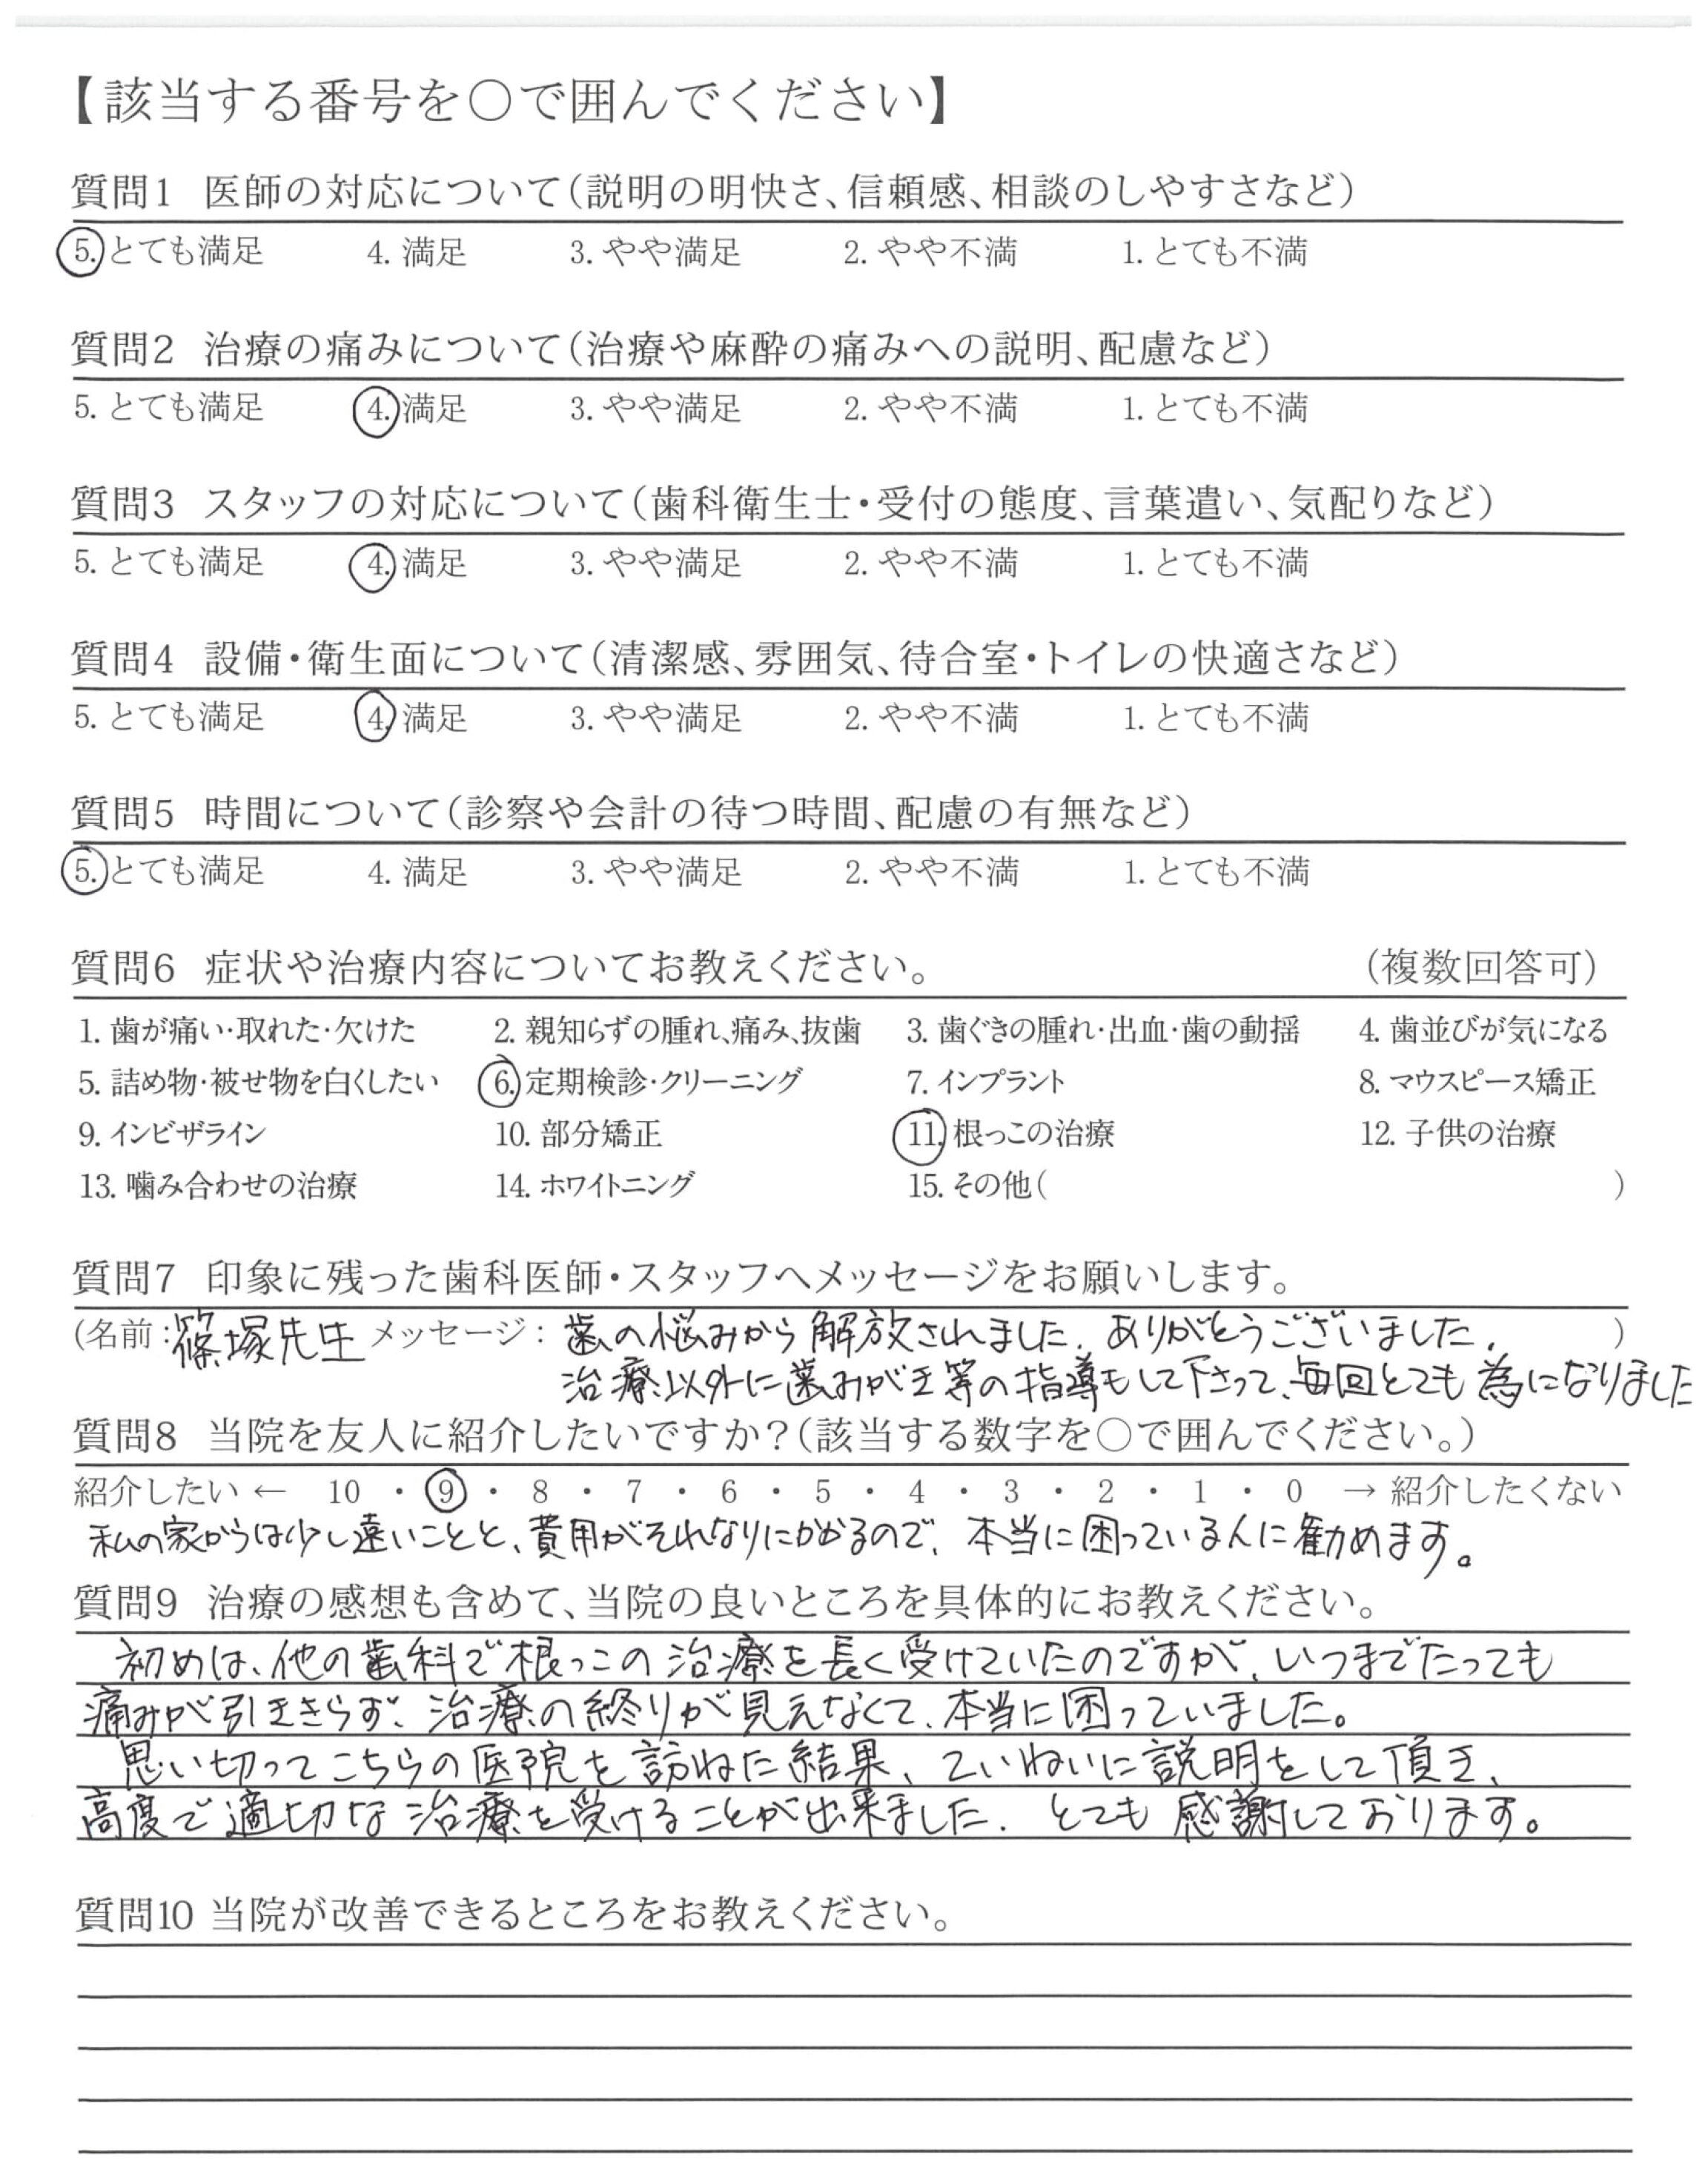 【該当する番号を○で囲んでください】
質問1 医師の対応について(説明の明快さ、信頼感、相談のしやすさなど)
5. とても満足 4. 満足 3. やや満足 2. やや不満 1. とても不満
質問2 治療の痛みについて(治療や麻酔の痛みへの説明、配慮など)
5. とても満足 4. 満足 3. やや満足 2. やや不満 1. とても不満
質問3 スタッフの対応について(歯科衛生士・受付の態度、言葉遣い、気配りなど)
5. とても満足 4. 満足 3. やや満足 2. やや不満 1. とても不満
質問4 設備・衛生面について(清潔感、雰囲気、待合室・トイレの快適さなど)
5. とても満足 4. 満足 3. やや満足 2. やや不満 1. とても不満
質問5 時間について(診察や会計の待つ時間、配慮の有無など)
5. とても満足 4. 満足 3. やや満足 2. やや不満 1. とても不満
質問6 症状や治療内容についてお教えください。 (複数回答可)
1. 歯が痛い・取れた・欠けた 2. 親知らずの腫れ、痛み、抜歯 3. 歯ぐきの腫れ・出血・歯の動揺 4. 歯並びが気になる
5. 詰め物・被せ物を白くしたい 6. 定期検診・クリーニング 7. インプラント 8. マウスピース矯正
9. インビザライン 10. 部分矯正 11. 根っこの治療 12. 子供の治療
13. 噛み合わせの治療 14. ホワイトニング 15. その他( )
質問7 印象に残った歯科医師・スタッフへメッセージをお願いします。
(名前:篠塚先生 メッセージ: 歯の悩みから解放されました。ありがとうございました。 )
治療以外に歯みがき等の指導もして下さって、毎回とても為になりました
質問8 当院を友人に紹介したいですか?(該当する数字を○で囲んでください。)
紹介したい ← 10 ・ 9 ・ 8 ・ 7 ・ 6 ・ 5 ・ 4 ・ 3 ・ 2 ・ 1 ・ 0 → 紹介したくない
私の家からは少し遠いことと、費用がそれなりにかかるので、本当に困っている人に勧めます。
質問9 治療の感想も含めて、当院の良いところを具体的にお教えください。
初めは、他の歯科で根っこの治療を長く受けていたのですが、いつまでたっても
痛みが引ききらず、治療の終りが見えなくて、本当に困っていました。
思い切ってこちらの医院を訪ねた結果、ていねいに説明をして頂き、
高度で適切な治療を受けることが出来ました。とても感謝しております。
質問10 当院が改善できるところをお教えください。